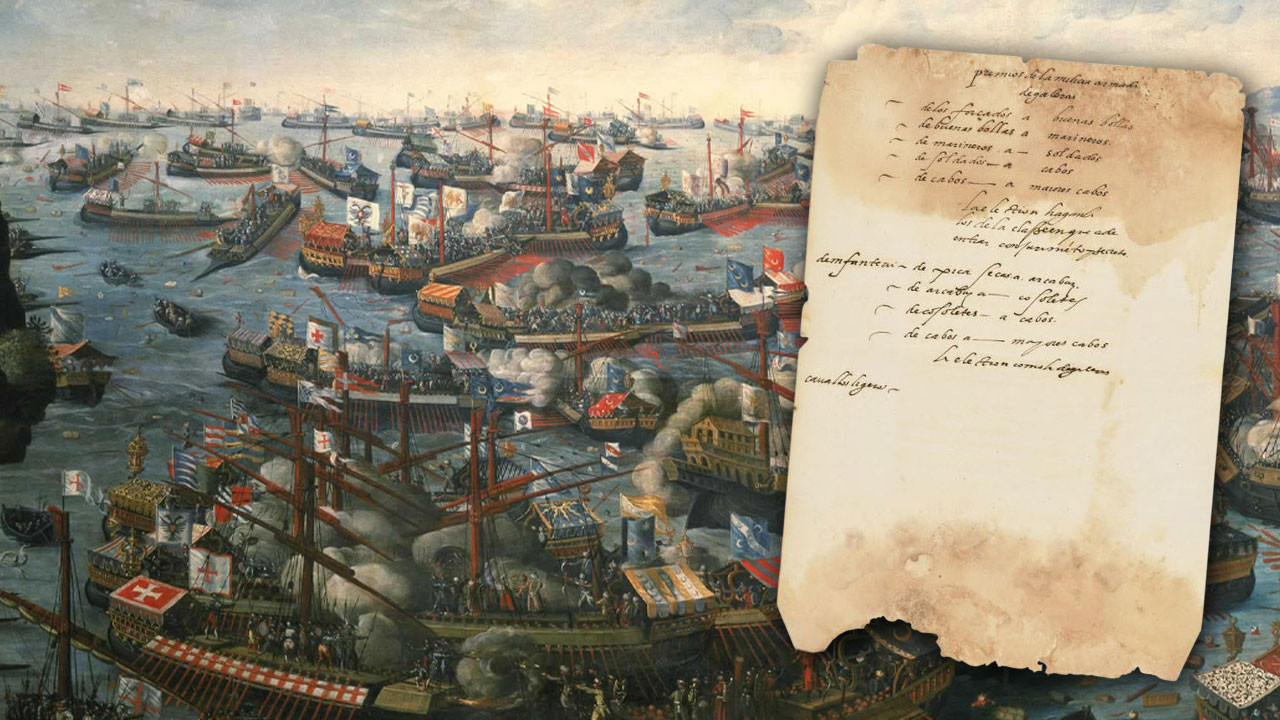 premios de la milicia armada
de galeras
de los forcados a buenas bollas
de buenas bollas a marineros.
de marineros a soldados
de soldados a cabos
de cabos a maiores cabos
la election hagan
los de la classe en que a de
entrar con juramento y secreto
de infanteria de pica seca a arcabuz.
de arcabuz a cosoletes
de cosoletes a cabos.
de cabos a mayores cabos
la election como la de galeras
cavallos ligeros